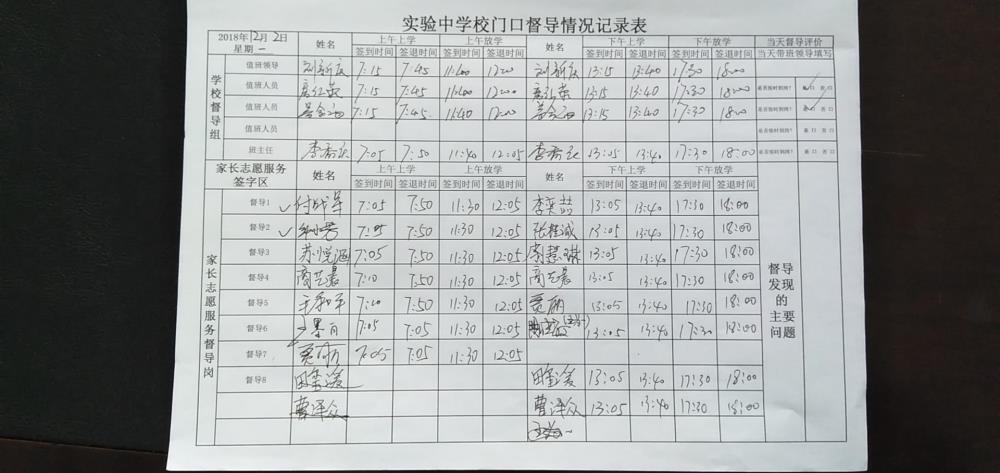 实验中学校门口督导情况记录表
2018年12月2日 星期一 姓名 上午上学 上午放学 姓名 下午上学 下午放学 当天督导评价
签到时间 签退时间 签到时间 签退时间 签到时间 签退时间 签到时间 签退时间 当天带班领导填写
学校督导组
值班领导 7:15 7:45 11:40 12:00 13:15 13:40 17:30 18:00
值班人员 7:15 7:45 11:40 12:00 13:15 13:40 17:30 18:00 是否按时到岗? 是口 否口
值班人员 7:15 7:45 11:40 12:00 13:15 13:40 17:30 18:00 是否按时到岗? 是口 否口
值班人员 是否按时到岗? 是口 否口
班主任 7:05 7:50 11:40 12:05 13:05 13:40 17:30 18:00 是否按时到岗? 是口 否口
家长志愿服务签字区 姓名 上午上学 上午放学 姓名 下午上学 下午放学
签到时间 签退时间 签到时间 签退时间 签到时间 签退时间 签到时间 签退时间
家长志愿服务督导岗
督导1 7:05 7:50 11:30 12:05 李奕喆 13:05 13:40 17:30 18:00
督导2 7:05 7:50 11:30 12:05 张桂诚 13:05 13:40 17:30 18:00
督导3 苏悦涵 7:05 7:50 11:30 12:05 13:05 13:40 17:30 18:00
督导4 商艺晨 7:10 7:50 11:30 12:05 商艺晨 13:05 13:40 17:30 18:00
督导5 7:10 7:50 11:30 12:05 13:05 13:40 17:30 18:00
督导6 7:05 7:05 11:30 12:05 13:05 13:40 17:30 18:00
督导7 7:05 7:05 11:30 12:05
督导8 13:05 13:40 17:30 18:00
曹泽众 曹泽众 13:05 13:40 17:30 18:00
督导发现的主要问题